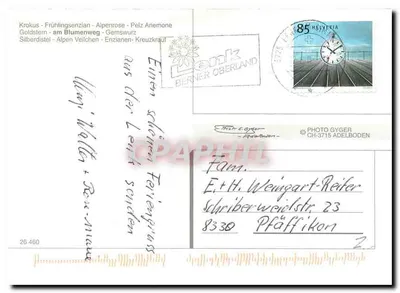 Krokus - Frühlingsenzian - Alpenrose - Pelz Anemone
Goldstern - am Blumenweg - Gemswurz
Silberdistel - Alpen Veilchen - Enzianen - Kreuzkraut
Lenk
BERNER OBERLAND
85 HELVETIA
© PHOTO GYGER
CH-3715 ADELBODEN
Einen schönen Feriengruss
aus der Lenk senden
Walter + Rose-Marie
Fam.
E.+H. Weingart-Reifer
Schreiberweidstr. 23
8330 Pfäffikon
26 460